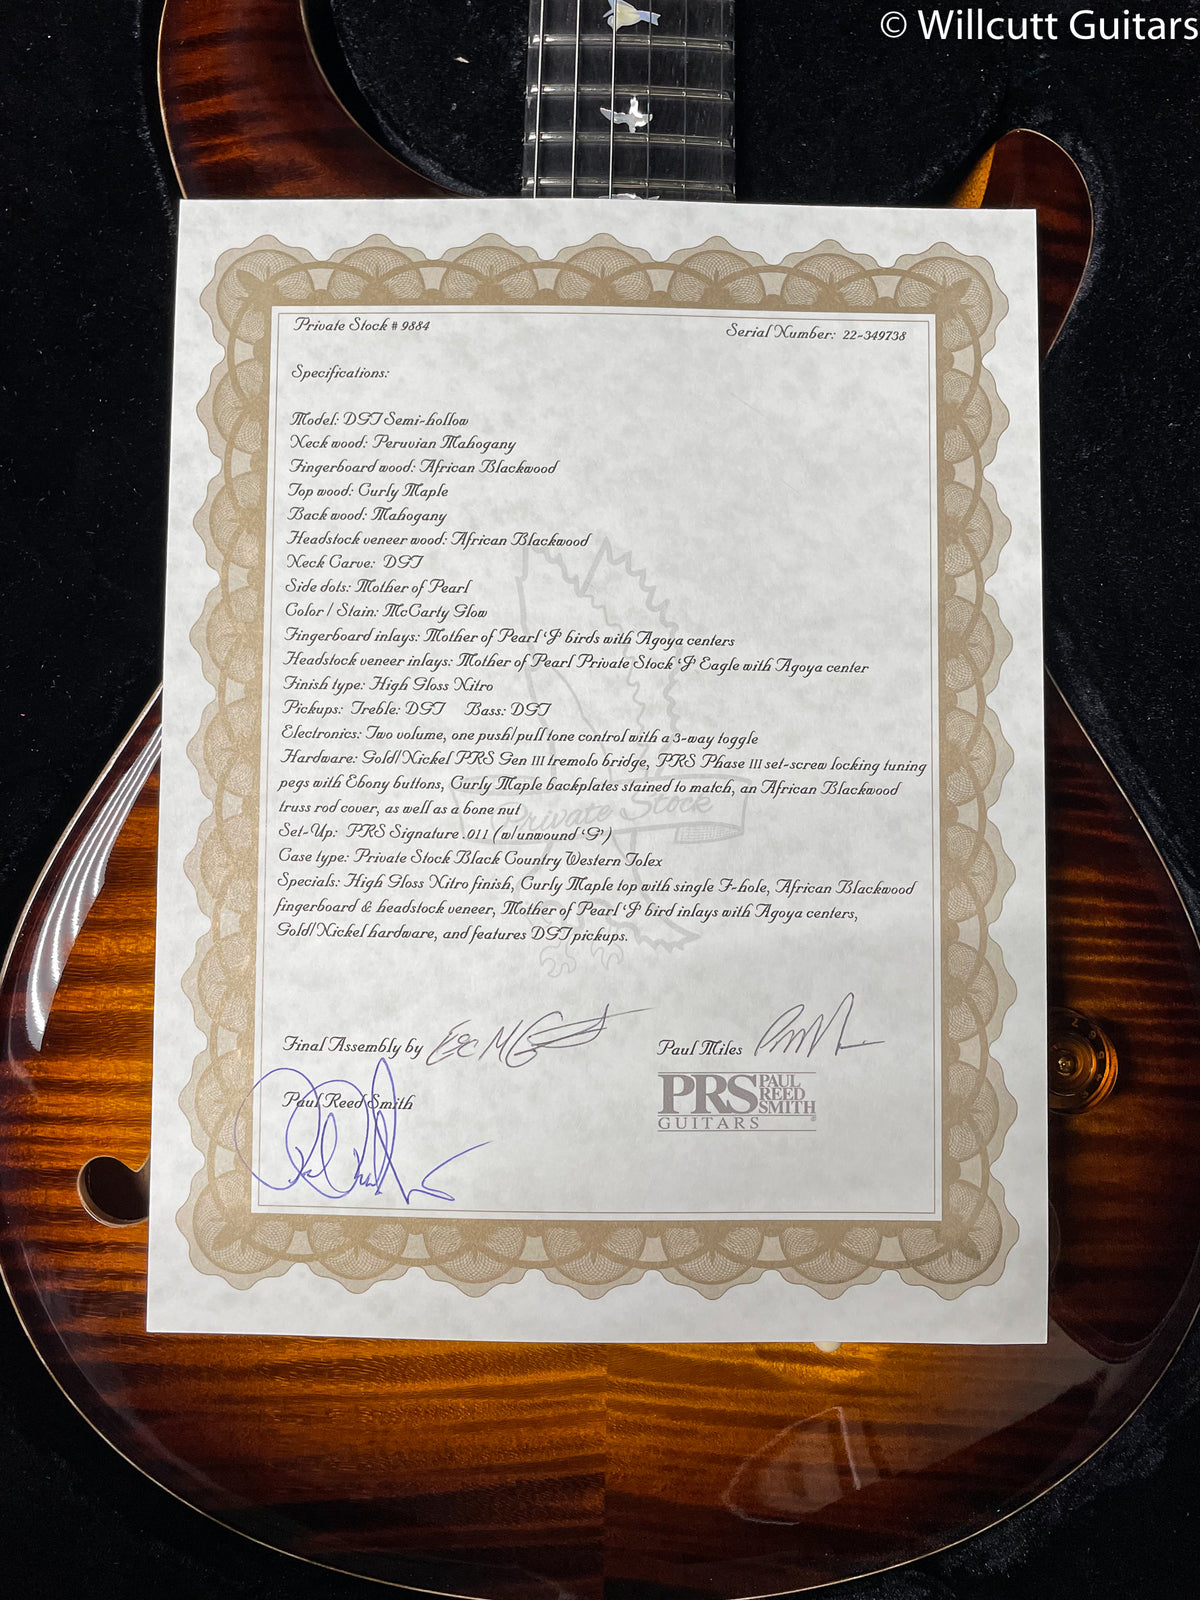 © Willcutt Guitars
Private Stock # 9884
Serial Number: 22-349738
Specifications:
Model: DGT Semi-hollow
Neck wood: Peruvian Mahogany
Fingerboard wood: African Blackwood
Top wood: Curly Maple
Back wood: Mahogany
Headstock veneer wood: African Blackwood
Neck Carve: DGT
Side dots: Mother of Pearl
Color / Stain: McCarty Glow
Fingerboard inlays: Mother of Pearl 'J' birds with Agoya centers
Headstock veneer inlays: Mother of Pearl Private Stock 'J' Eagle with Agoya center
Finish type: High Gloss Nitro
Pickups: Treble: DGT Bass: DGT
Electronics: Two volume, one push/pull tone control with a 3-way toggle
Hardware: Gold/Nickel PRS Gen III tremolo bridge, PRS Phase III set-screw locking tuning
pegs with Ebony buttons, Curly Maple backplates stained to match, an African Blackwood
truss rod cover, as well as a bone nut
Private Stock
Set-Up: PRS Signature .011 (w/unwound 'G')
Case type: Private Stock Black Country Western Tolex
Specials: High Gloss Nitro finish, Curly Maple top with single F-hole, African Blackwood
fingerboard & headstock veneer, Mother of Pearl 'J' bird inlays with Agoya centers,
Gold/Nickel hardware, and features DGT pickups.
Final Assembly by
Paul Miles
Paul Reed Smith
PRS PAUL REED SMITH
GUITARS